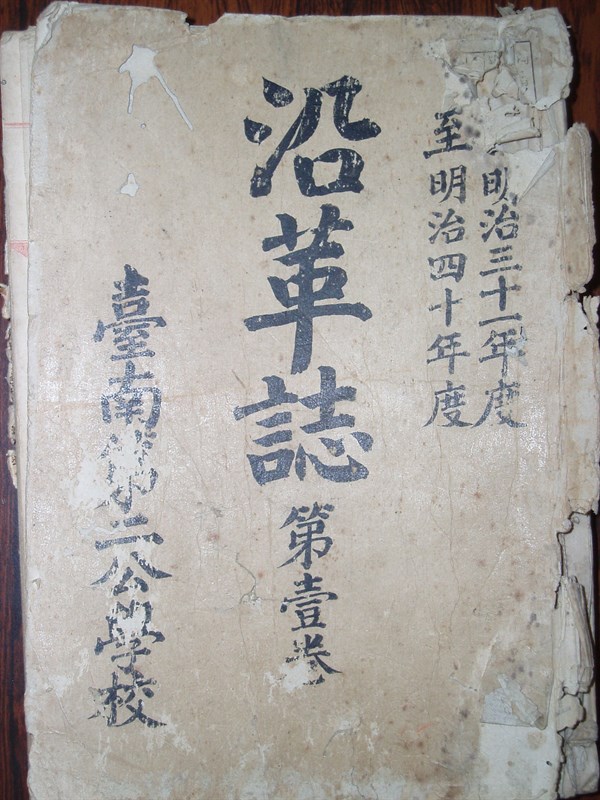 明治三十一年度
至明治四十年度
沿革誌 第壹卷
臺南第二公學校